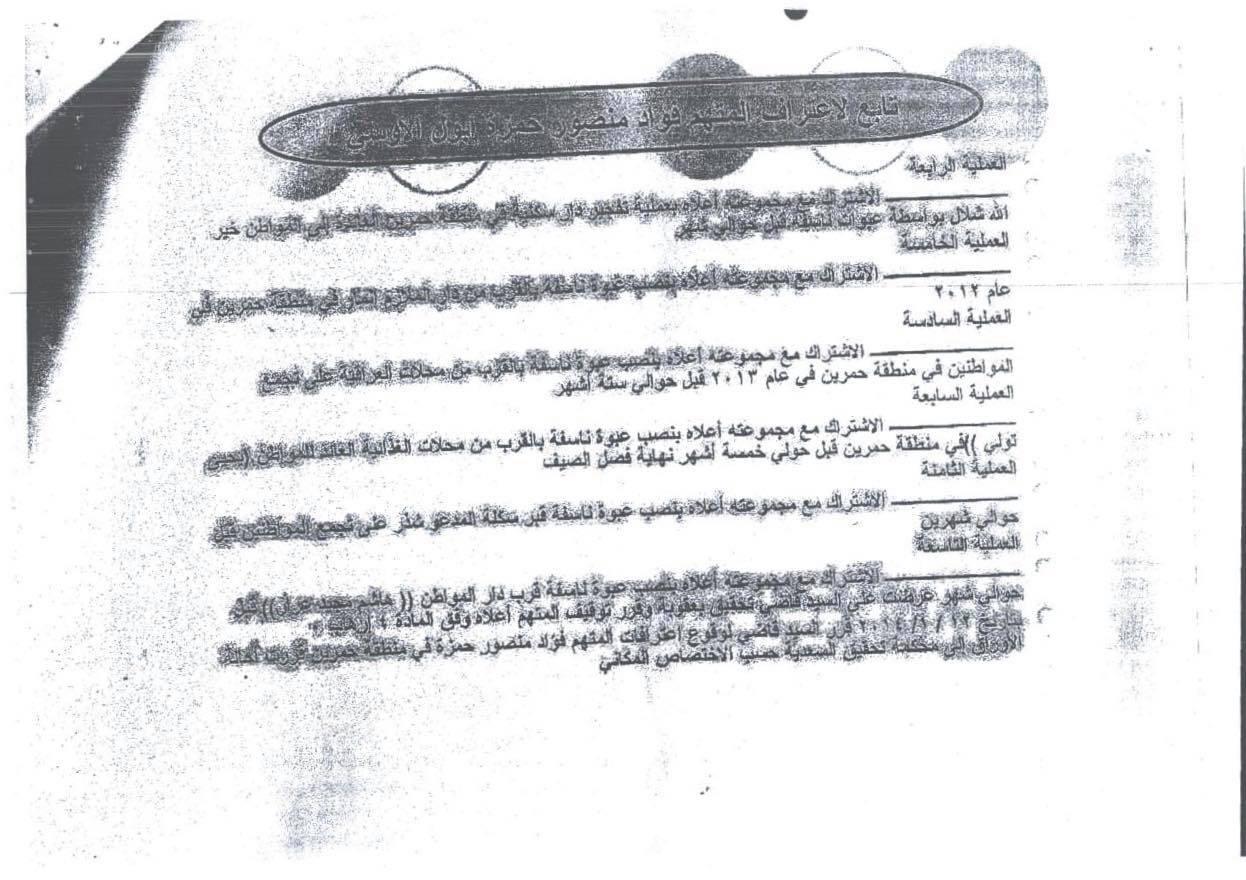 تابع لاعتراف المتهم فؤاد منصور حمزة
العملية الرابعة
الاشتراك مع مجموعته أعلاه بعملية تفجير دار سكنية في منطقة حمرين العائدة إلى المواطن خير
الله شلال بواسطة عبوات ناسفة قبل حوالي شهر
العملية الخامسة
الاشتراك مع مجموعته أعلاه بنصب عبوة ناسفة بالقرب من دار الملازم في منطقة حمرين في
عام ٢٠١٢
العملية السادسة
الاشتراك مع مجموعته أعلاه بنصب عبوة ناسفة بالقرب من محلات على تجمع
المواطنين في منطقة حمرين في عام ٢٠١٣ قبل حوالي ستة أشهر
العملية السابعة
الاشتراك مع مجموعته أعلاه بنصب عبوة ناسفة بالقرب من محلات الغذائية العائد للمواطن
تولي ))في منطقة حمرين قبل حولي خمسة أشهر نهاية فصل الصيف
العملية الثامنة
الاشتراك مع مجموعته أعلاه بنصب عبوة ناسفة قبر سكلة المدعو على تجمع المواطنين قبل
حوالي شهرين
العملية التاسعة
الاشتراك مع مجموعته أعلاه بنصب عبوة ناسفة قرب دار المواطن (( هاشم محمد )) قبل
حوالي شهر عرضت على السيد قاضي تحقيق بعقوبة وقرر توقيف المتهم أعلاه وفق المادة ٤ ارهاب
بتاريخ قرر السيد قاضي لوقوع اعترافات المتهم فؤاد منصور حمزة في منطقة حمرين
الأوراق إلى محكمة تحقيق السعدية حسب الاختصاص المكاني